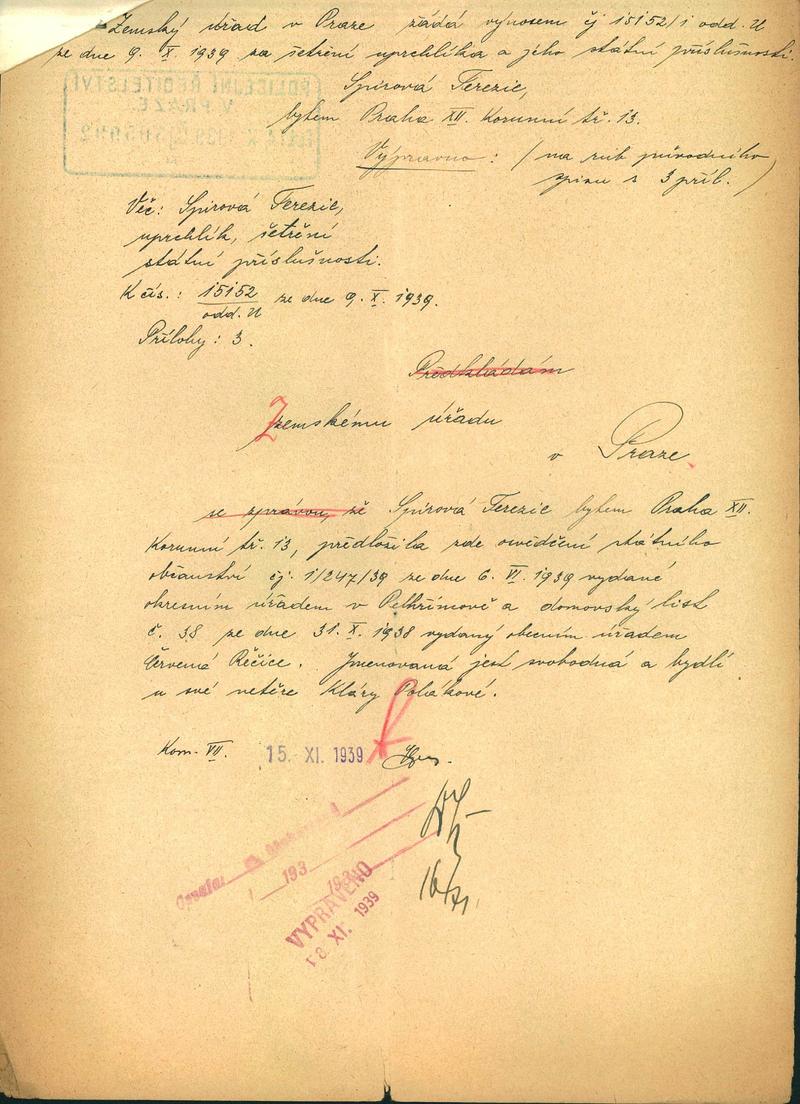 Zemský úřad v Praze žádá výnosem čj 15152/1 odd. U
ze dne 9. X. 1939 za šetření uprchlíka a jeho státní příslušnosti.
POLICEJNÍ ŘEDITELSTVÍ
V PRAZE
Spirová Terezie,
bytem Praha XII. Korunní tř. 13.
Výpravno: / na rub původního
spisu s 3 příl. /
Věc: Spirová Terezie,
uprchlík, šetření
státní příslušnosti.
K čís.: 15152 ze dne 9. X. 1939.
odd. U
Přílohy: 3.
Předkládám
Zemskému úřadu
v Praze.
se zprávou, že Spirová Terezie bytem Praha XII.
Korunní tř. 13, předložila zde osvědčení státního
občanství čj. 1/247/39 ze dne 6. VI. 1939 vydané
okresním úřadem v Pelhřimově a domovský list
č. 38 ze dne 31. X. 1938 vydaný obecním úřadem
Červená Řečice. Jmenovaná jest svobodná a bydlí
u své neteře Kláry Polákové.
Kom. VII. 15. XI. 1939
193
VYPRAVENO
18 XI. 1939
16/XI.